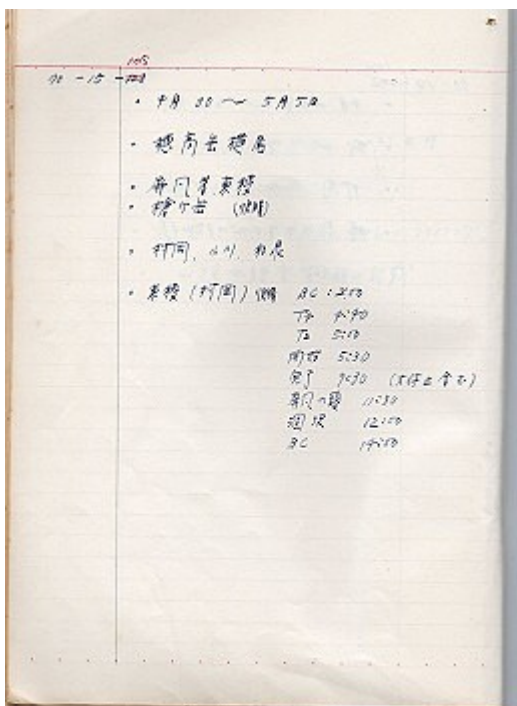 105
・4月30～5月5日
・穂高岳横尾
・屏風岩東稜
・槍ヶ岳
・村岡, 小川,
・東稜 (村岡) BC : 2:50
T4 4:40
T2 5:10
開始 5:30
完了 9:30 (大休止含む)
屏風の頭 11:30
涸沢 12:00
BC 14:50